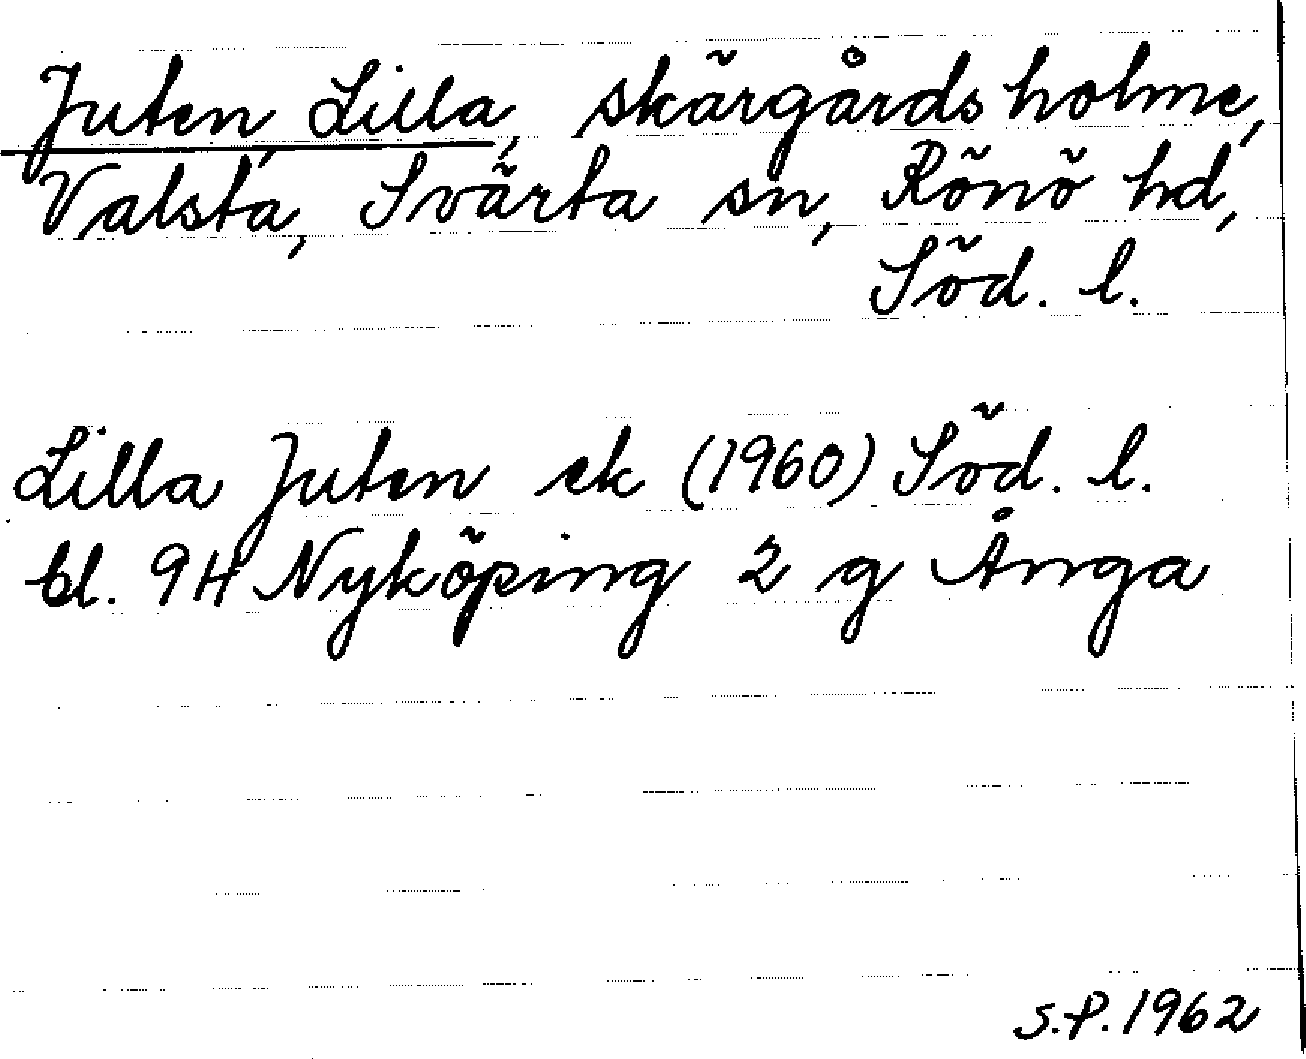 Juten, Lilla, skärgårdsholme,
Valsta, Svärta sn, Rönö hd,
Söd. l.
Lilla Juten ek (1960) Söd. l.
bl. 9H Nyköping 2 g Ånga
S.P. 1962